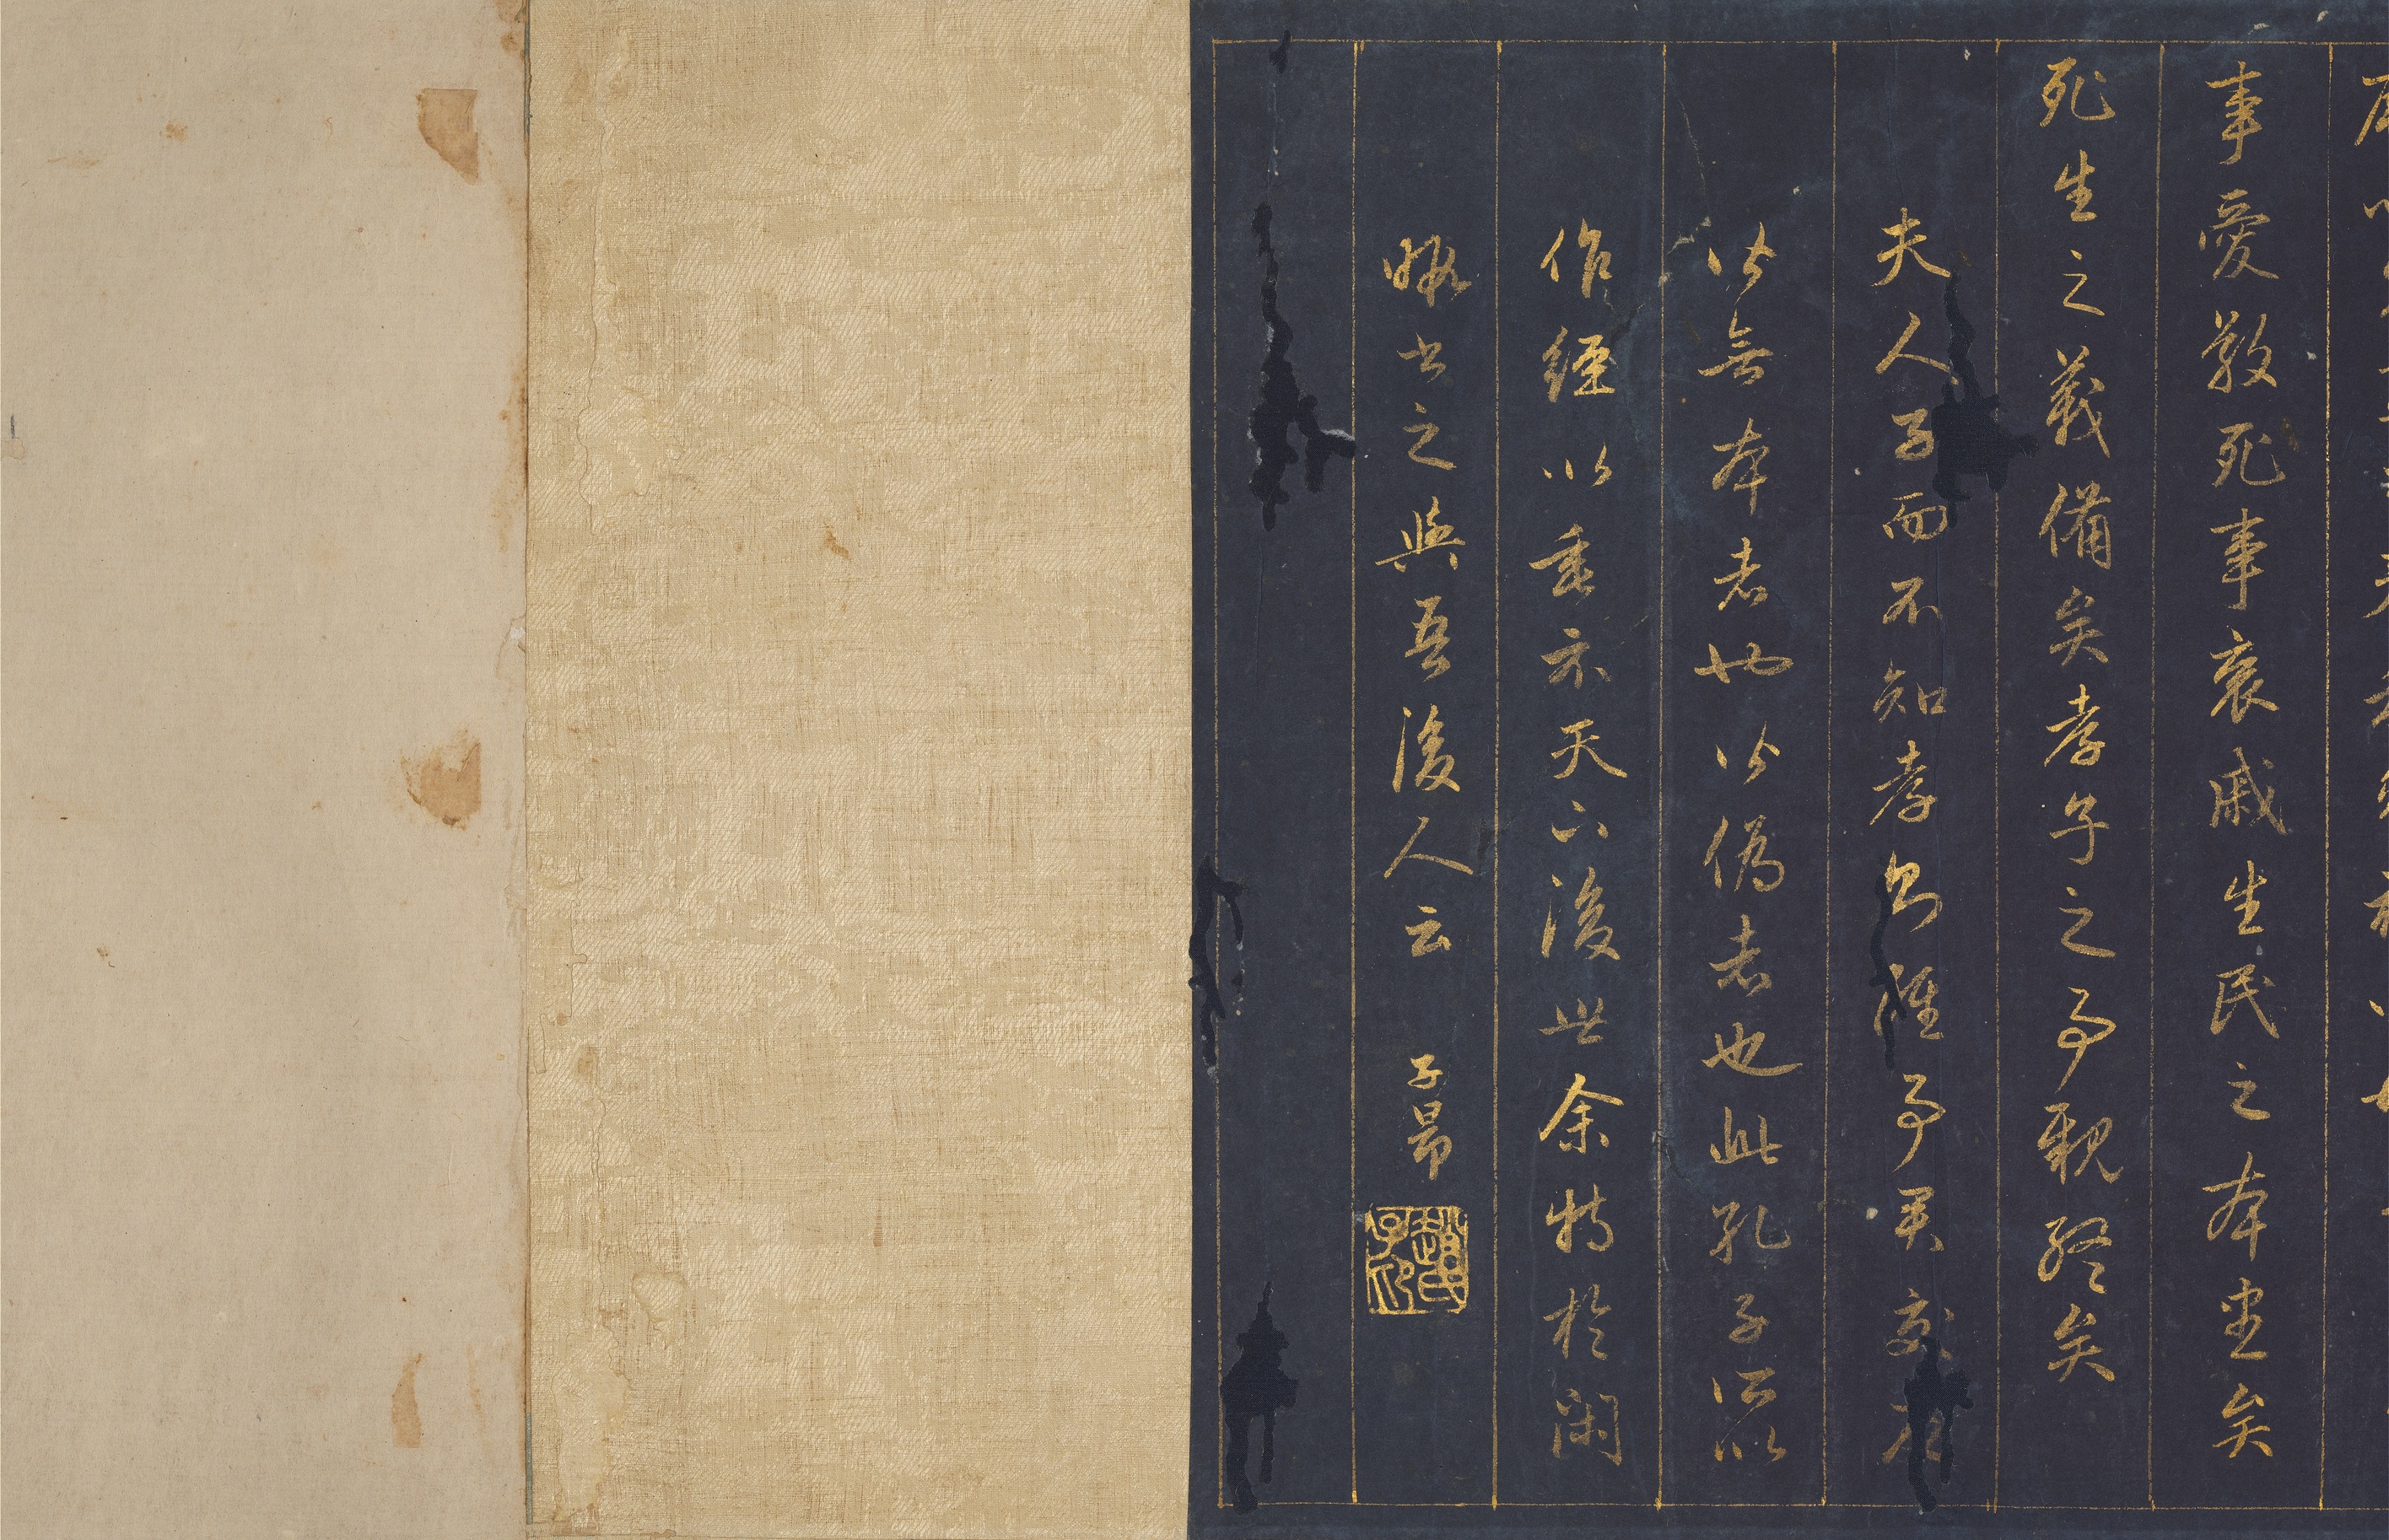 事愛敬死事哀戚生民之本盡矣
死生之義備矣孝子之事親終矣
夫人子而不知孝則雖事君交友
必無本者也必偽者也此孔子所以
作經以垂示天下後世余特於閑
暇書之與吾後人云 子昂
趙氏子昂